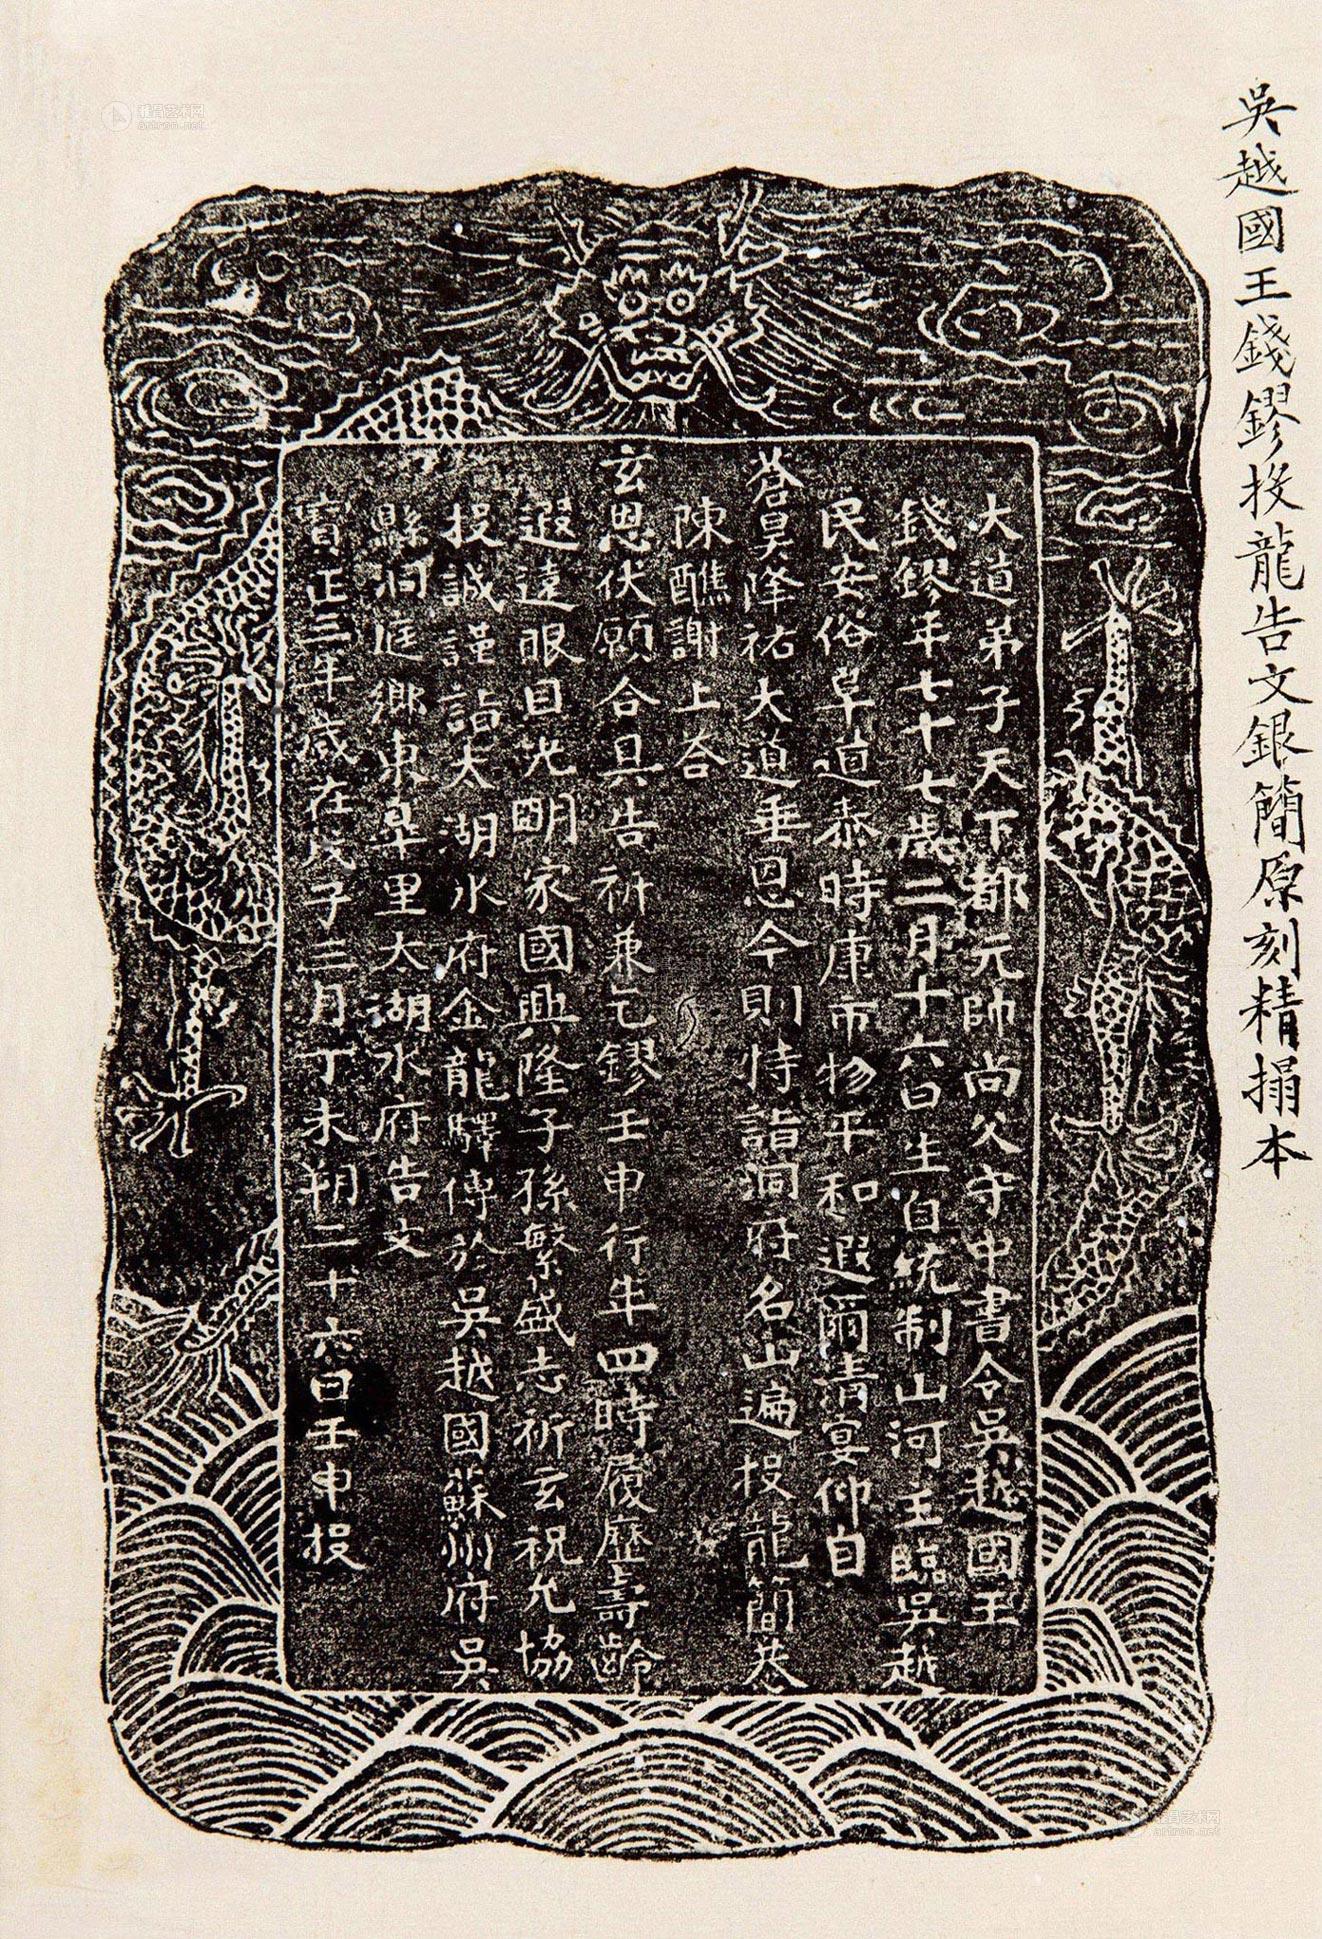 吳越國王錢鏐投龍告文銀簡原刻精搨本
大道弟子天下都元帥尚父守中書令吳越國王
錢鏐年七十七歲二月十六日生自統制山河主臨吳越
民安俗阜道泰時康市物平和遐邇清宴仰自
蒼昊降祐大道垂恩今則特詣洞府名山遍投龍簡恭
陳醮謝上荅
玄恩伏願合具告祈兼乞鏐壬申行年四時履歷壽齡
遐遠眼目光明家國興隆子孫繁盛志祈玄祝允協
投誠謹詣太湖水府金龍驛傳於吳越國蘇州府吳
縣洞庭鄉東皐里太湖水府告文
寶正三年歲在戊子三月丁未朔二十六日壬申投
雅昌艺术网
artron.net
雅昌艺术网
artron.net